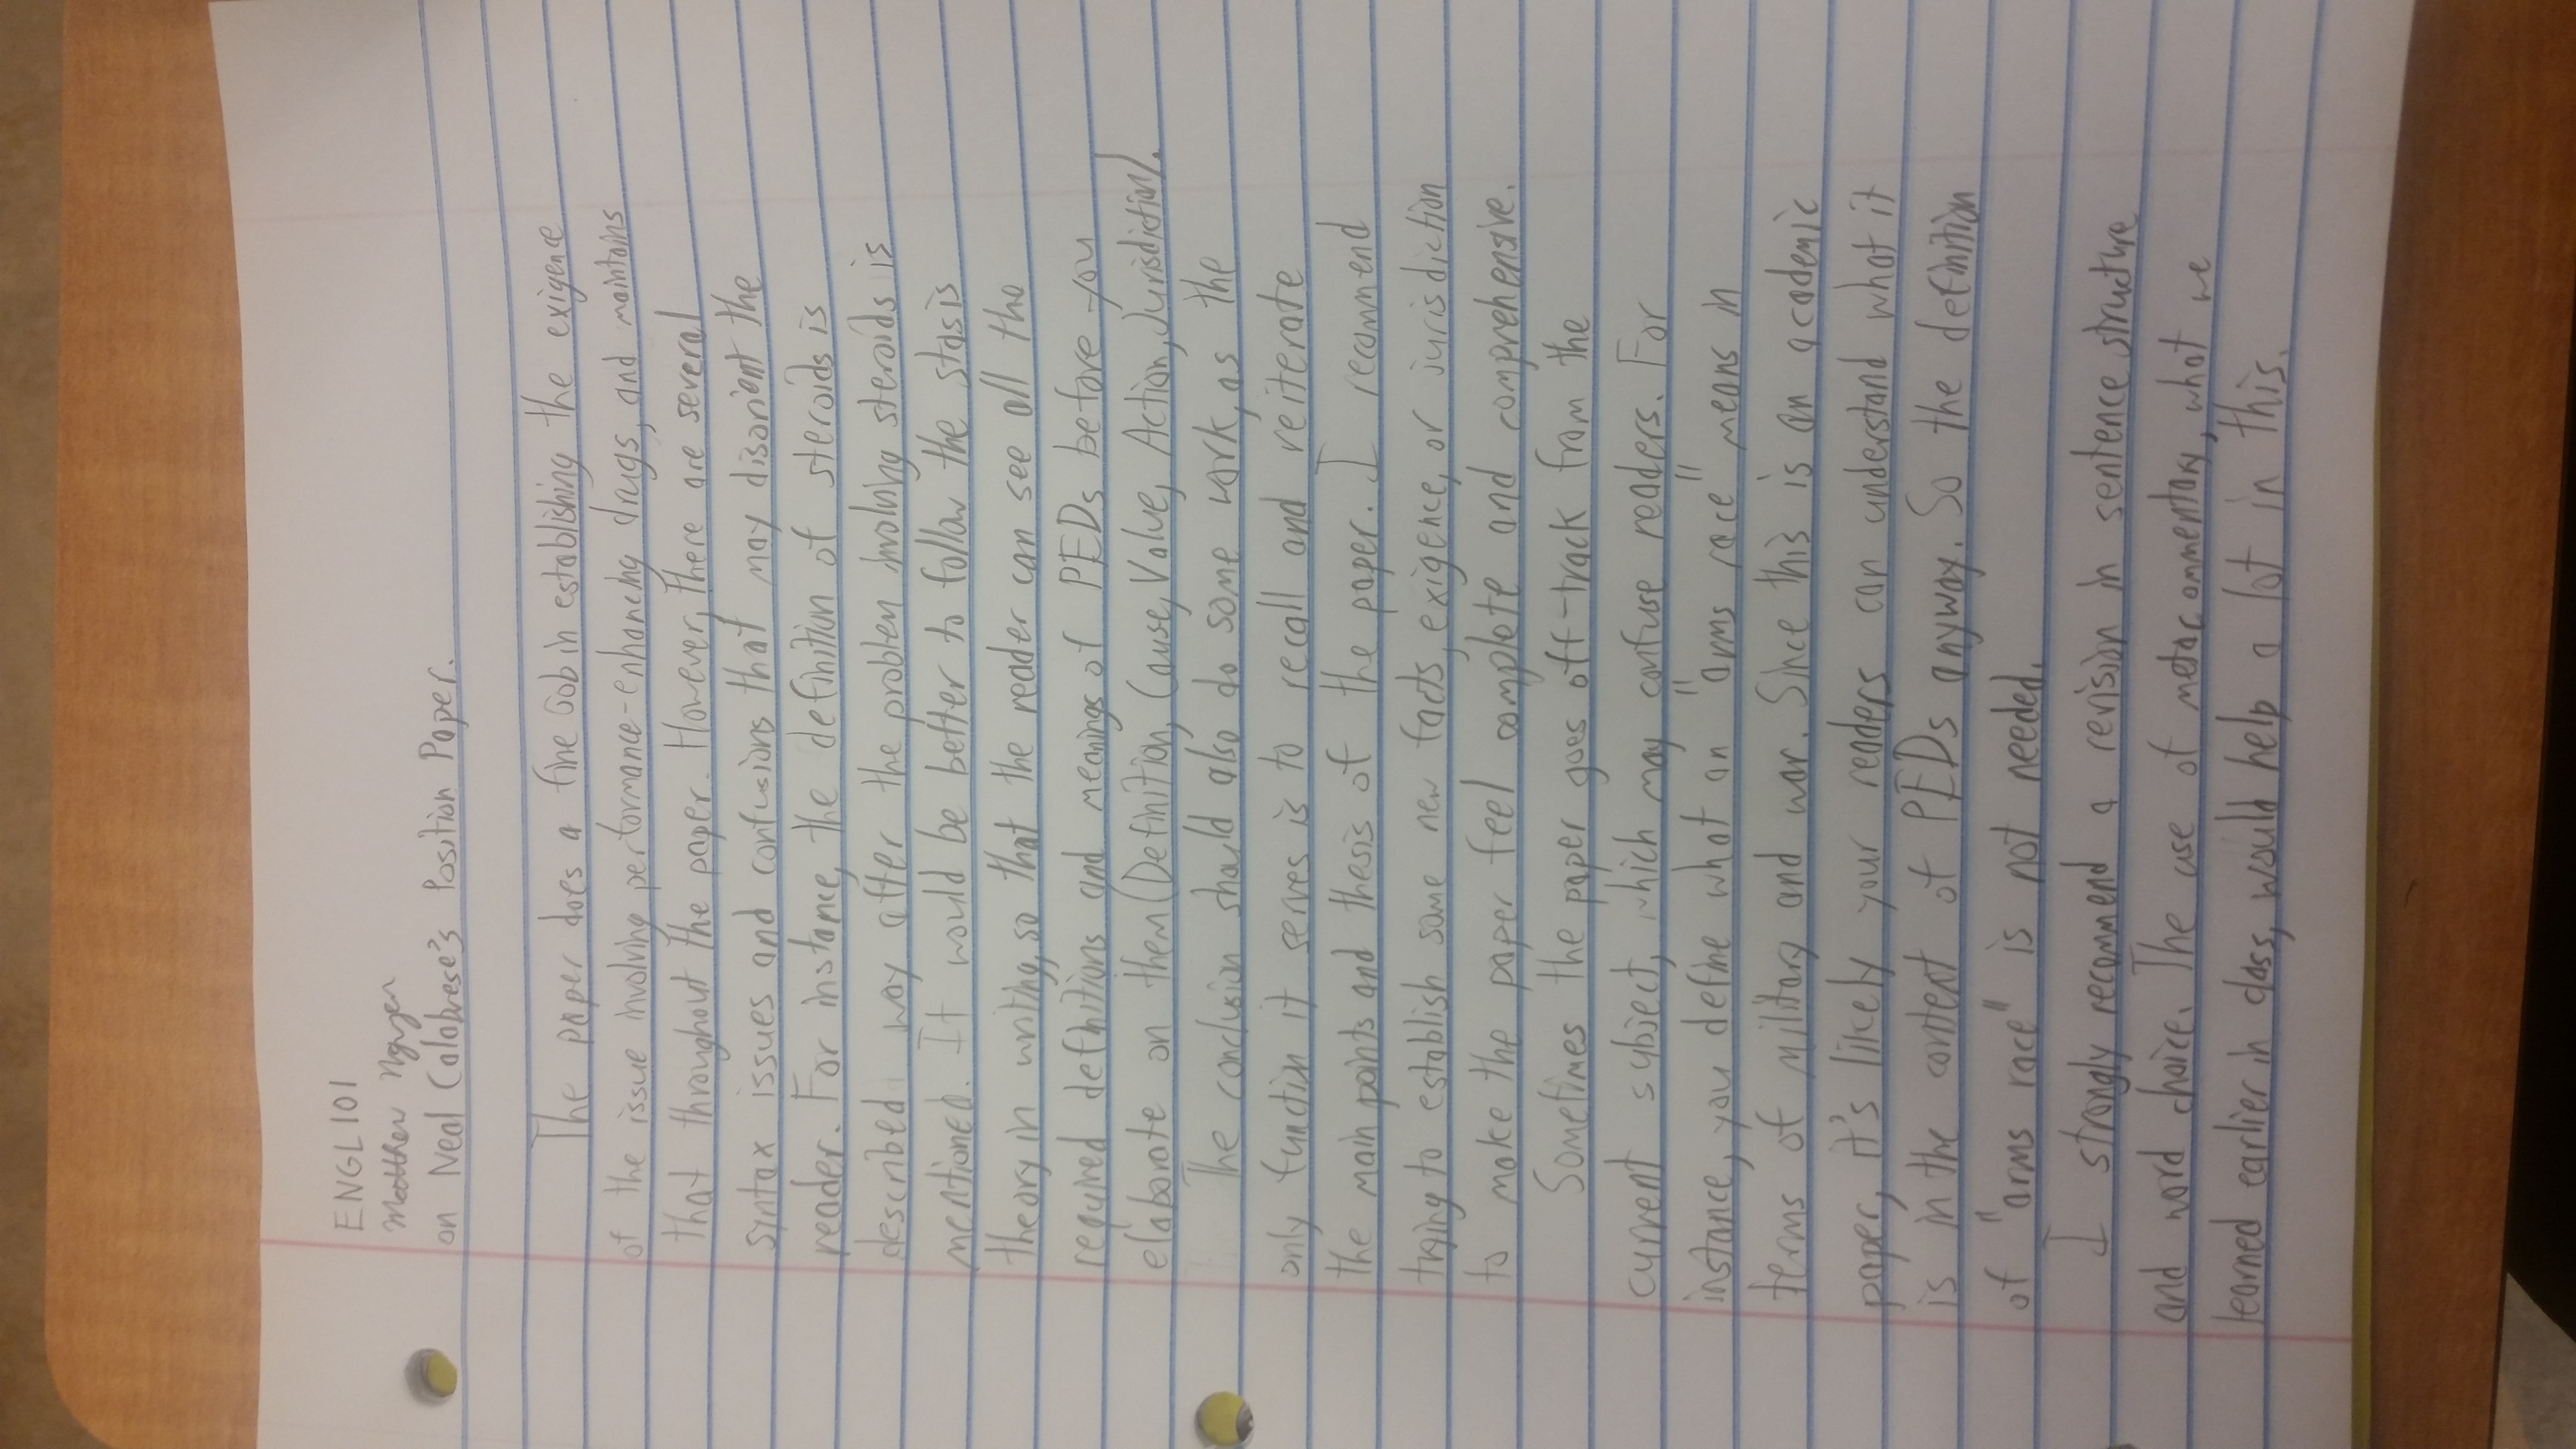 ENGL101
Matthew Nguyen
on Neal Calabrese's Position Paper.
The paper does a fine job in establishing the exigence
of the issue involving performance-enhancing drugs, and maintains
that throughout the paper. However, there are several
syntax issues and confusions that may disorient the
reader. For instance, the definition of steroids is
described way after the problem involving steroids is
mentioned. It would be better to follow the stasis
theory in writing, so that the reader can see all the
required definitions and meanings of PEDs before you
elaborate on them (Definition, Cause, Value, Action, Jurisdiction).
The conclusion should also do some work, as the
only function it serves is to recall and reiterate
the main points and thesis of the paper. I recommend
trying to establish some new facts, exigence, or jurisdiction
to make the paper feel complete and comprehensive.
Sometimes the paper goes off-track from the
current subject, which may confuse readers. For
instance, you define what an "arms race" means in
terms of military and war. Since this is an academic
paper, it's likely your readers can understand what it
is in the context of PEDs anyway. So the definition
of "arms race" is not needed.
I strongly recommend a revision in sentence structure
and word choice. The use of metacommentary, what we
learned earlier in class, would help a lot in this.